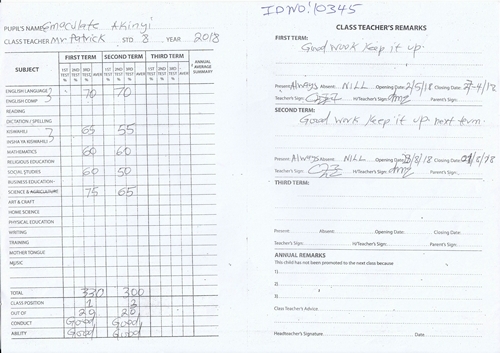 PUPIL'S NAME Emaculate Akinyi
CLASS TEACHER Mr Patrick STD 8 YEAR 2018
SUBJECT FIRST TERM SECOND TERM THIRD TERM ANNUAL AVERAGE SUMMARY
1ST TEST % 2ND TEST % 3RD TEST % AVER 1ST TEST % 2ND TEST % 3RD TEST % AVER 1ST TEST % 2ND TEST % 3RD TEST % AVER
ENGLISH LANGUAGE 70 70
ENGLISH COMP
READING
DICTATION / SPELLING
KISWAHILI 65 55
INSHA YA KISWAHILI
MATHEMATICS 60 60
RELIGIOUS EDUCATION
SOCIAL STUDIES 60 50
BUSINESS EDUCATION
SCIENCE & AGRICULTURE 75 65
ART & CRAFT
HOME SCIENCE
PHYSICAL EDUCATION
WRITING
TRAINING
MOTHER TONGUE
MUSIC
TOTAL 330 300
CLASS POSITION 1 2
OUT OF 20 20
CONDUCT Good Good
ABILITY Good Good
ID NO: 10345
CLASS TEACHER'S REMARKS
FIRST TERM:
Good work keep it up.
Present: Always Absent: NILL Opening Date: 2/5/18 Closing Date: /4/18
Teacher's Sign: H/Teacher's Sign: Parent's Sign:
SECOND TERM:
Good work keep it up next term.
Present: Always Absent: NILL Opening Date: /8/18 Closing Date: /18
Teacher's Sign: H/Teacher's Sign: Parent's Sign:
THIRD TERM:
Present: Absent: Opening Date: Closing Date:
Teacher's Sign: H/Teacher's Sign: Parent's Sign:
ANNUAL REMARKS
This child has not been promoted to the next class because
1)
2)
3)
Class Teacher's Advice
Headteacher's Signature Date